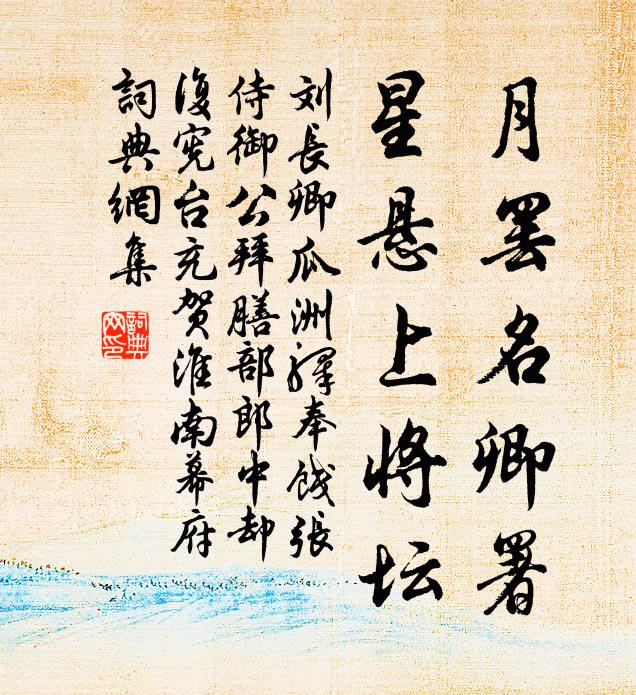 月罢名卿署
星悬上将坛
刘长卿瓜洲驿奉饯张
侍御公拜膳部郎中却
復宪台充贺淮南幕府
詞典網集
詞典
网印